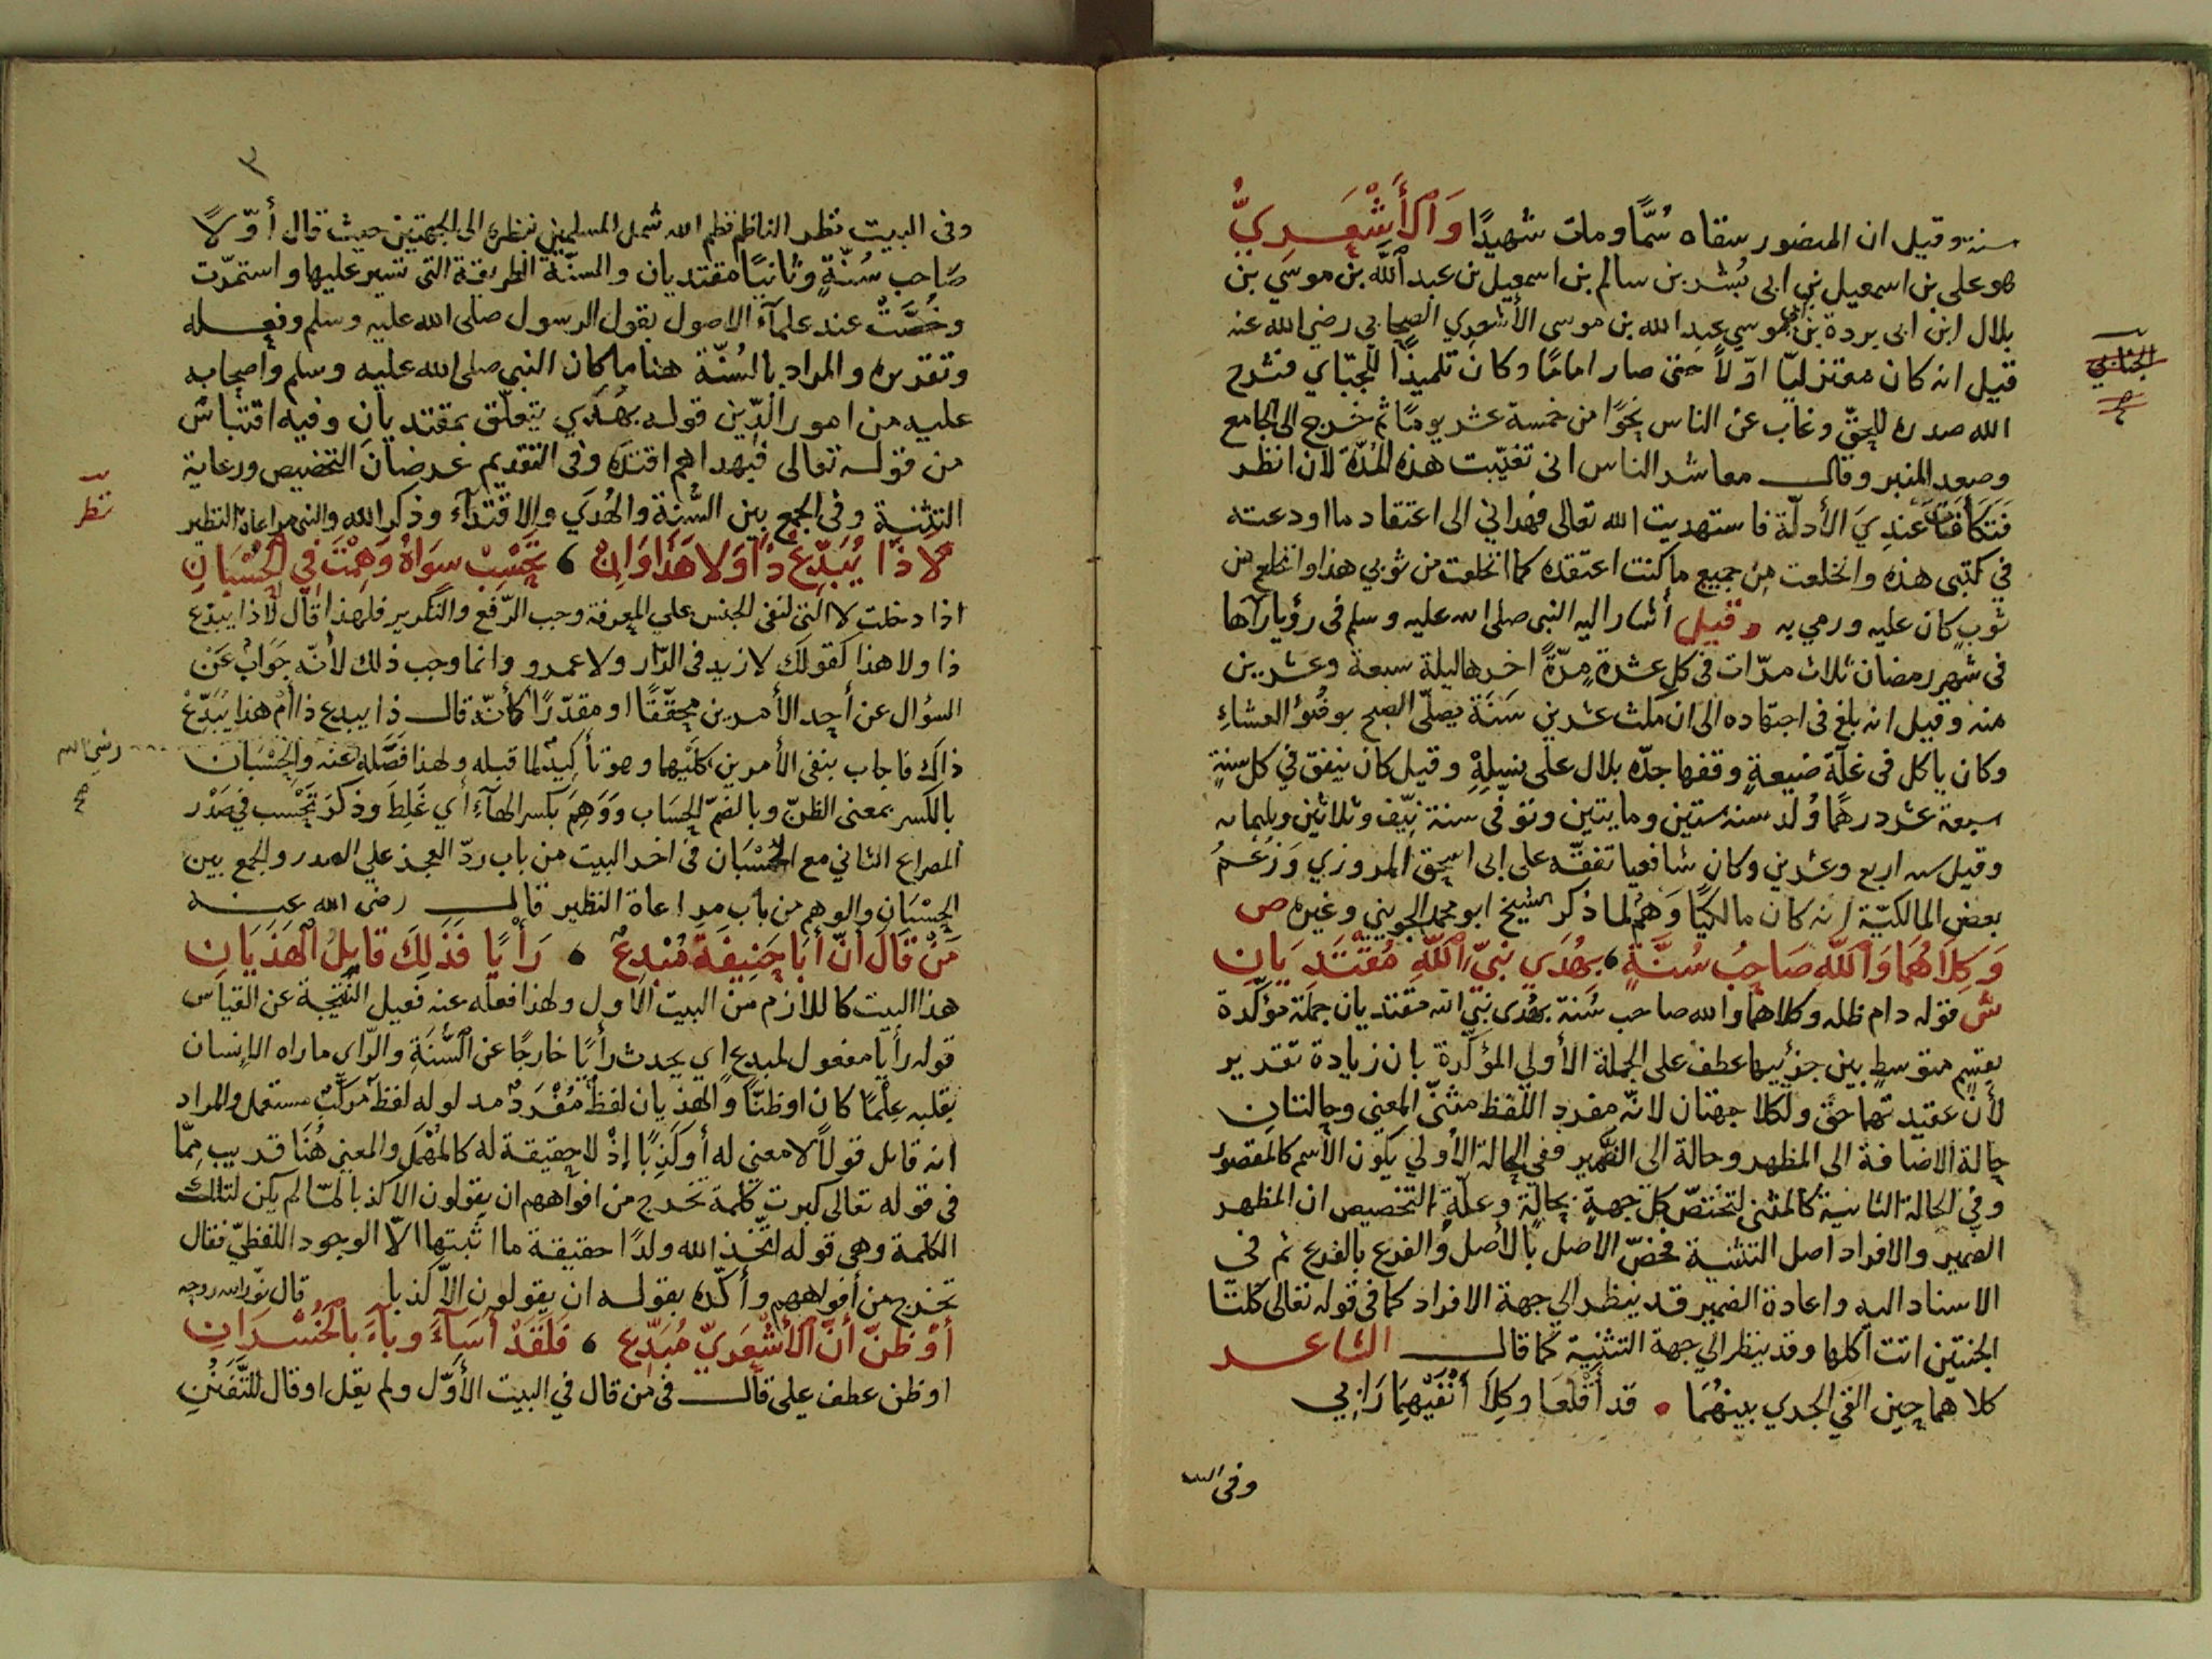 سنة وقيل ان المنصور سقاه سُمًّا ومات شهيدًا وَالْأَشْعَرِيُّ
هو علي بن اسمعيل بن ابى بُشر بن سالم بن اسمعيل بن عبد اللّه بن موسي بن
بلال ابن ابى بردة بن ابي موسي عبد الله بن موسى الأشعري الصحابي رضي الله عنه
قيل انه كان معتزليّا اوّلاً حتى صار امامًا وكان تلميذًا للجبّاي فشرح
الجبّائي
صح
الله صدره للحقّ وغاب عن الناس نحوًا من خمسة عشر يومًا ثم خرج الى الجامع
وصعد المنبر وقال معاشر الناس انى تغيّبت هذه المُدّة لأن انظر
فَتَكَافَتْ عندِيَ الأدلّة فاستهديت الله تعالى فهداني الى اعتقاد ما اودعته
في كتبى هذه وانخلعت من جميع ما كنت اعتقده كما انخلعت من ثوبي هذا وانخلع من
ثوبٍ كان عليه ورمي به وقيل أشار اليه النبى صلى الله عليه وسلم فى رؤيا رآها
فى شهر رمضان ثلاث مرّات في كل عشرة مرّةً اخرها ليلة سبعة وعشرين
منه وقيل انه بلغ فى اجتهاده الى ان مكث عشرين سَنَة يصلّى الصبح بوضُوء العشاءِ
وكان ياكل فى غلّة ضيعةٍ وقفها جدّه بلال على نسلِهِ وقيل كان ينفق في كل سنةٍ
سبعة عشر درهمًا وُلد سنة ستين ومايتين وتوفى سنة نيّف وثلاثين وثلثمايه
وقيل سنه اربع وعشرين وكان شافعيا تفقّه على ابى اسحق المروزي وَزَعْمُ
بعض المالكيّة انه كان مالكيًّا وَهْمٌ لما ذكر الشيخ ابو محمد الجويني وغيره ص
وَكِلَاهُمَا وَاللّٰهِ صَاحِبُ سُنَّةٍ ، بِهُدَي نَبِيِّ اللّٰهِ مُقْتَدِيَانِ
ش قوله دام ظله وكلاهما والله صاحب سُنة بهُدى نبيّ الله مقتديان جملة مؤكّدة
بقسمٍ متوسطٍ بين جزئيها عطف على الجملة الأولي المؤكّرة بان زيادة تقدير
لأنّ عقيدتهما حقّ ولكلا جهتان لانّه مفرد اللفظ مثنّى المعني وحالتان
حالة الاضافة الى المظهر وحالة الى الضّمير ففي الحالة الأولي يكون الأسم كالمقصور
وفي الحالة الثانية كالمثنى لتختصّ كل جهةٍ بحالةٍ وعلّة التخصيص ان المظهر
الضمير والافراد اصل التثنية فخصّ الاصل بالأصل والفرع بالفرع ثم في
الاسناد اليه واعادة الضمير قد ينظر الي جهة الافراد كما فى قوله تعالى كلتا
الجنتين اتت اكلها وقد ينظر الي جهة التثنية كما قال الشاعر
كلاهما حين القي الجدي بينهُمَا • قد أَقْلعَا وكِلَا أَنْفَيْهِمَا رَابِي
وفى البيت
٣
وفى البيت نظر الناظم نظم الله شمل المسلمين بنظره الى الجهتين حيث قال أوّلًا
صَاحب سُنّةٍ وثانيًا مقتديان والسنّة الطريقة التى تسير عليها واستمرّت
وخُصَّتْ عند علمآء الاصول بقول الرسول صلى الله عليه وسلم وفعله
وتقريره والمراد بالسُنّة هنا ما كان النبي صلى الله عليه وسلم واصحابه
عليه من امور الدّين قوله بهُدَي يتعلّق بمقتديان وفيه اقتباسٌ
من قوله تعالى فبهداهم اقتده وفى التقديم غرضان التخصيص ورعاية
التثنية وفى الجمع بين السُّنة والهُدَي والاقتدآء وذكر الله والنبى مراعاة النظير
نظر
لَا ذَا يُبَدِّعُ ذَا وَلَا هَذَا وَإِنْ ، تَحْسِبْ سِوَاهُ وَهِمْتَ فِي الْحُسْبَانِ
اذا دخلت لا التى لنفى الجنس علي المعرفة وجب الرّفع والتكرير فلهذا قال لا ذا يبدّع
ذا ولا هذا كقولك لا زيد فى الدّار ولا عمرو وانما وجب ذلك لأنّه جَوَابٌ عَنْ
السؤال عن أحد الأمرين محقّقًا او مقدّرًا كأنّه قال ذا يبدع ذا أمْ هذا يُبَدِّعْ
ذاك فاجاب بنفى الأمرين كلَيْهما وهو تأكيدٌ لما قبله ولهذا فَصَّلَه عنه والحِسْبَان
رضي الله
صح
بالكسر بمعنى الظنّ وبالضمّ الحِسَاب وَوَهِمَ بكسر الهآءِ أي غَلِطَ وذكرَ تَحْسِب في صَدْر
المصراع الثاني مع الحُسْبَان فى اخر البيت من باب ردّ العجز علي الصدر والجمع بين
الحِسْبَان والوهم من باب مراعاة النظير قال رضى الله عنه
مَنْ قَالَ أَنَّ أَبَا حَنِيفَةَ مُبْدِعٌ • رَأْيًا فَذَلِكَ قَائِلُ الْهَذَيَانِ
هذا البيت كاللازم من البيت الأول ولهذا فصله عنه فصل النتيجة عن القياس
قوله رأيا مفعول لمبدع اي يحدث رأيًا خارجًا عن السُّنَةِ والرّاي ما راه الإنسان
بقلبه عِلْمًا كان او ظنّا والهذيان لفظٌ مُفْرَدٌ مدلوله لفظٌ مركّبٌ مستعمل والمراد
انه قايل قولًا لا معني له أو كَذِبًا إذْ لا حقيقة له كالمُهْمَل والمعني هُنَا قريب مِمّا
فى قوله تعالى كبرت كلمة تخرج من افواههم ان يقولون الا كذبا لمّا لم يكن لتلك
الكلمة وهى قوله اتّخذ الله ولدًا حقيقة ما اثبتها الّا الوجود اللفظيّ فقال
تخرج من أفواههم وأكّده بقوله ان يقولون الّا كذبا قال نوّر الله روحه
أَوْ ظَنَّ أَنَّ الْأَشْعَرِيَّ مُبَدِّعٌ ، فَلَقَدْ أَسَآءَ وبآءَ بِالْخُسْرَانِ
او ظن عطف على قال فى من قال في البيت الأوّل ولم يقل او قال للتَّفَنُنِ